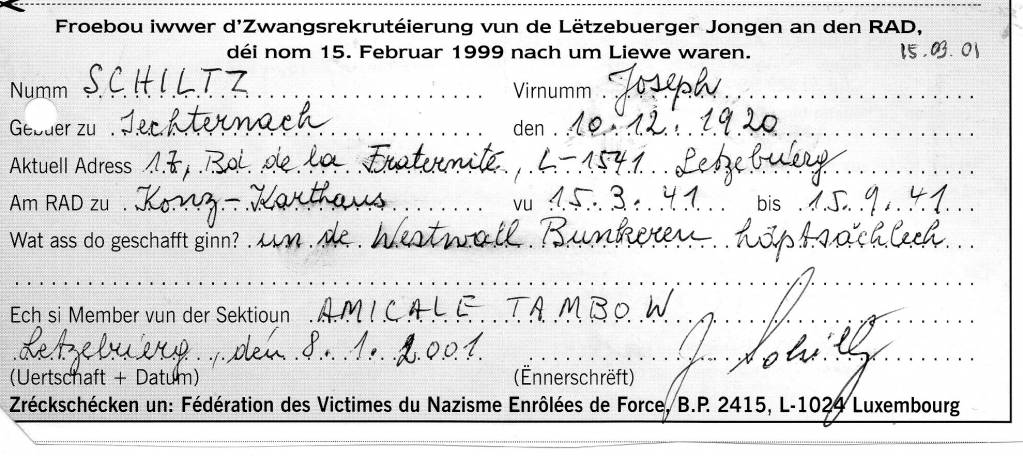 Froebou iwwer d'Zwangsrekrutéierung vun de Lëtzebuerger Jongen an den RAD,
déi nom 15. Februar 1999 nach um Liewe waren. 15.03.01
Numm SCHILTZ Virnumm Joseph
Gebuer zu Iechternach den 10.12.1920
Aktuell Adress 17, Bd de la Fraternité, L-1541 Letzebuerg
Am RAD zu Konz-Karthaus vu 15.3.41 bis 15.9.41
Wat ass do geschafft ginn? un de Westwall Bunkeren häptsächlech
Ech si Member vun der Sektioun AMICALE TAMBOW
Letzebuerg, den 8.1.2001 J. Schiltz
(Uertschaft + Datum) (Ënnerschrëft)
Zréckschécken un: Fédération des Victimes du Nazisme Enrôlées de Force, B.P. 2415, L-1024 Luxembourg